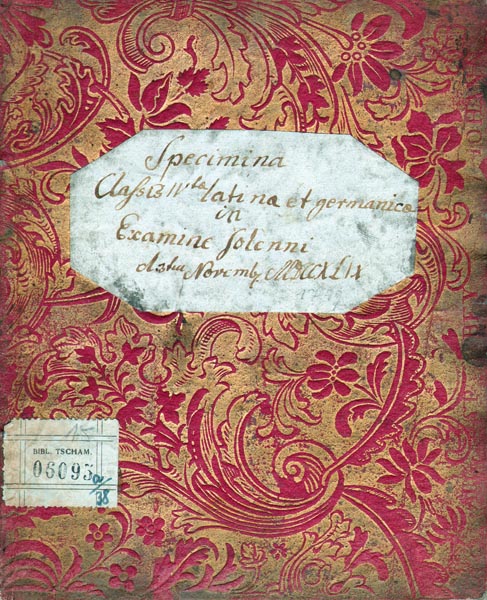 Specimina
Classis IV ta latina et germanica
in
Examine Solenni
d. 3tia Novembr. MDCCXLIX
15
BIBL. TSCHAM.
06093
a/38